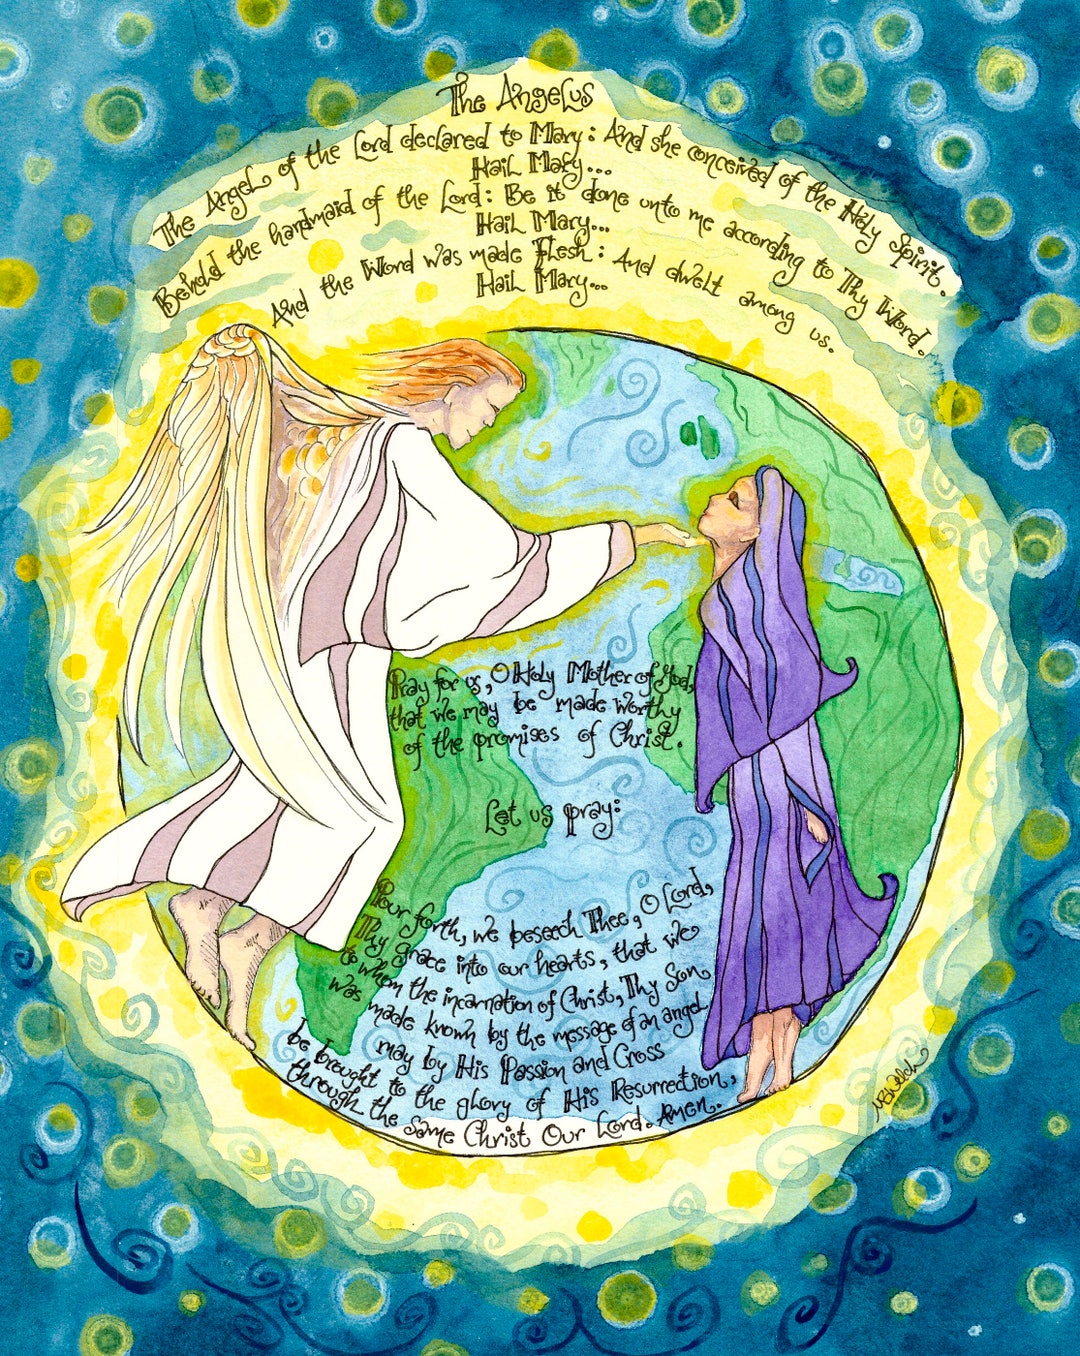 The Angelus
The Angel of the Lord declared to Mary: And she conceived of the Holy Spirit.
Hail Mary...
Behold the handmaid of the Lord: Be it done unto me according to Thy Word.
Hail Mary...
And the Word was made Flesh: And dwelt among us.
Hail Mary...
Pray for us, O Holy Mother of God,
that we may be made worthy
of the promises of Christ.
Let us pray:
Pour forth, we beseech Thee, O Lord,
Thy grace into our hearts, that we
to whom the incarnation of Christ, Thy Son
was made known by the message of an angel
may by His Passion and Cross
be brought to the glory of His Resurrection,
through the same Christ Our Lord. Amen.